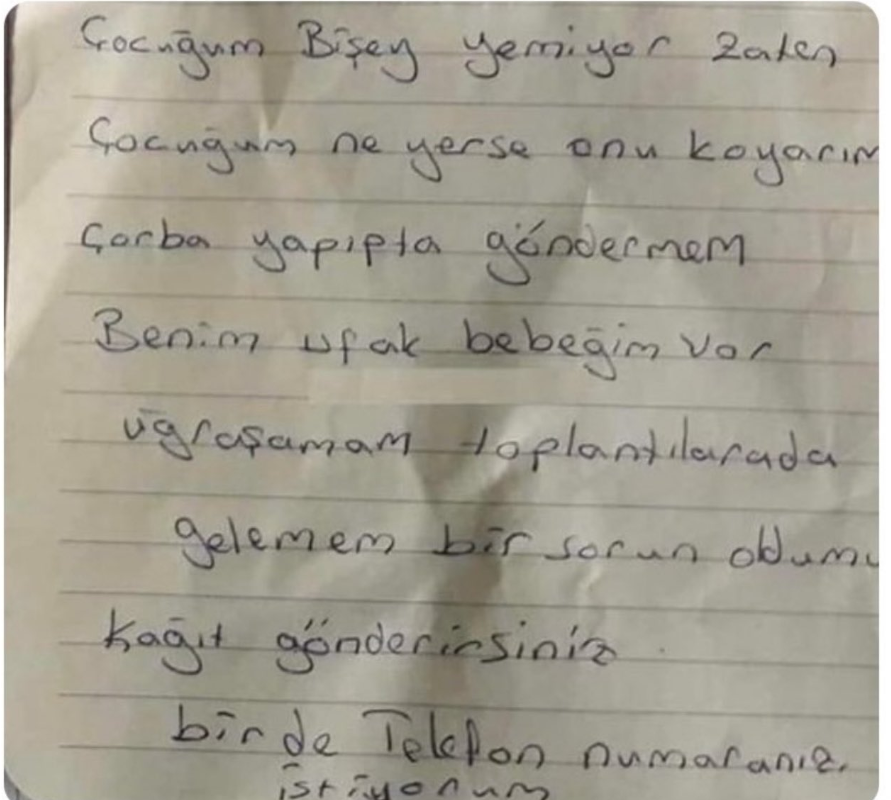 Çocuğum Bişey yemiyor zaten
Çocuğum ne yerse onu koyarım
Çorba yapıpta göndermem
Benim ufak bebeğim var
uğraşamam toplantılarada
gelemem bir sorun oldumu
Kağıt gönderirsiniz.
birde Telefon numaranız.
istiyorum